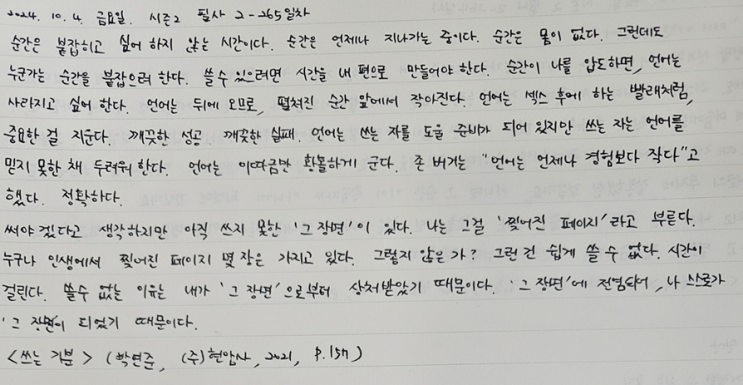 2024. 10. 4. 금요일. 시즌2 필사 2-265일차
순간은 붙잡히고 싶어 하지 않는 시간이다. 순간은 언제나 지나가는 중이다. 순간은 몸이 없다. 그런데도
누군가는 순간을 붙잡으려 한다. 쓸 수 있으려면 시간을 내 편으로 만들어야 한다. 순간이 나를 압도하면, 언어는
사라지고 싶어 한다. 언어는 뒤에 오므로, 펼쳐진 순간 앞에서 작아진다. 언어는 섹스 후에 하는 빨래처럼,
중요한 걸 지운다. 깨끗한 성공. 깨끗한 실패. 언어는 쓰는 자를 도울 준비가 되어 있지만 쓰는 자는 언어를
믿지 못한 채 두려워 한다. 언어는 이따금만 황홀하게 군다. 존 버거는 "언어는 언제나 경험보다 작다"고
했다. 정확하다.
써야겠다고 생각하지만 아직 쓰지 못한 '그 장면'이 있다. 나는 그걸 '찢어진 페이지'라고 부른다.
누구나 인생에서 찢어진 페이지 몇 장은 가지고 있다. 그렇지 않은가? 그런 건 쉽게 쓸 수 없다. 시간이
걸린다. 쓸 수 없는 이유는 내가 '그 장면'으로부터 상처받았기 때문이다. '그 장면'에 전염되어, 나 스스로가
'그 장면'이 되었기 때문이다.
<쓰는 기분> (박연준, (주)현암사, 2021, p.157)